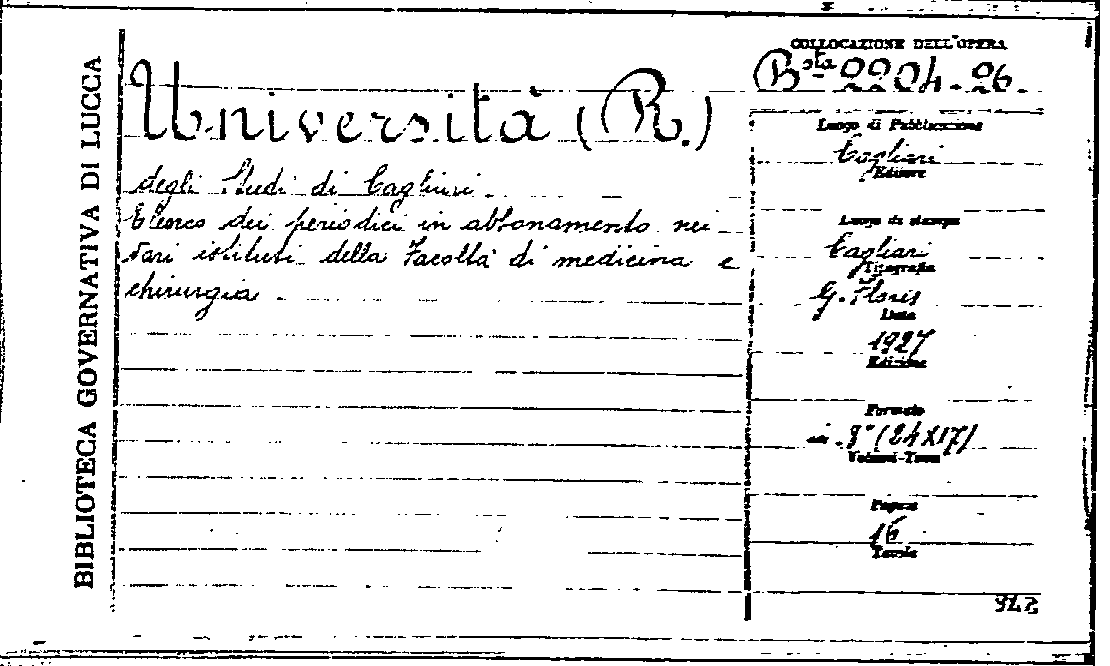 BIBLIOTECA GOVERNATIVA DI LUCCA
Università (R.)
degli Studi di Cagliari.
Elenco dei periodici in abbonamento nei
vari istituti della Facoltà di medicina e
chirurgia
COLLOCAZIONE DELL'OPERA
Bsta 2204.26.
Luogo di Pubblicazione
Cagliari
Editore
Luogo di stampa
Cagliari
Tipografia
G. Floris
Data
1927
Edizione
Formato
in 8° (24X17)
Volumi-Tomi
Pagine
16
Tavole